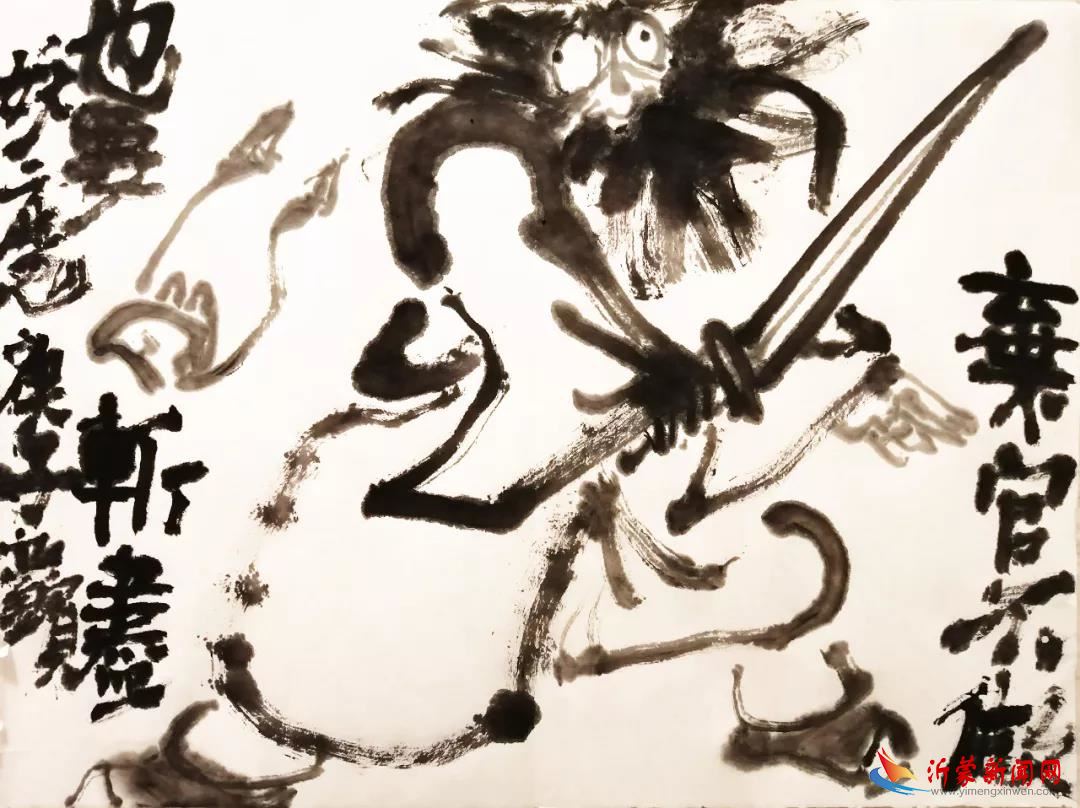 棄官不做
也要斬盡
妖魔 庚子
沂蒙新闻网
www.yimengxinwen.com